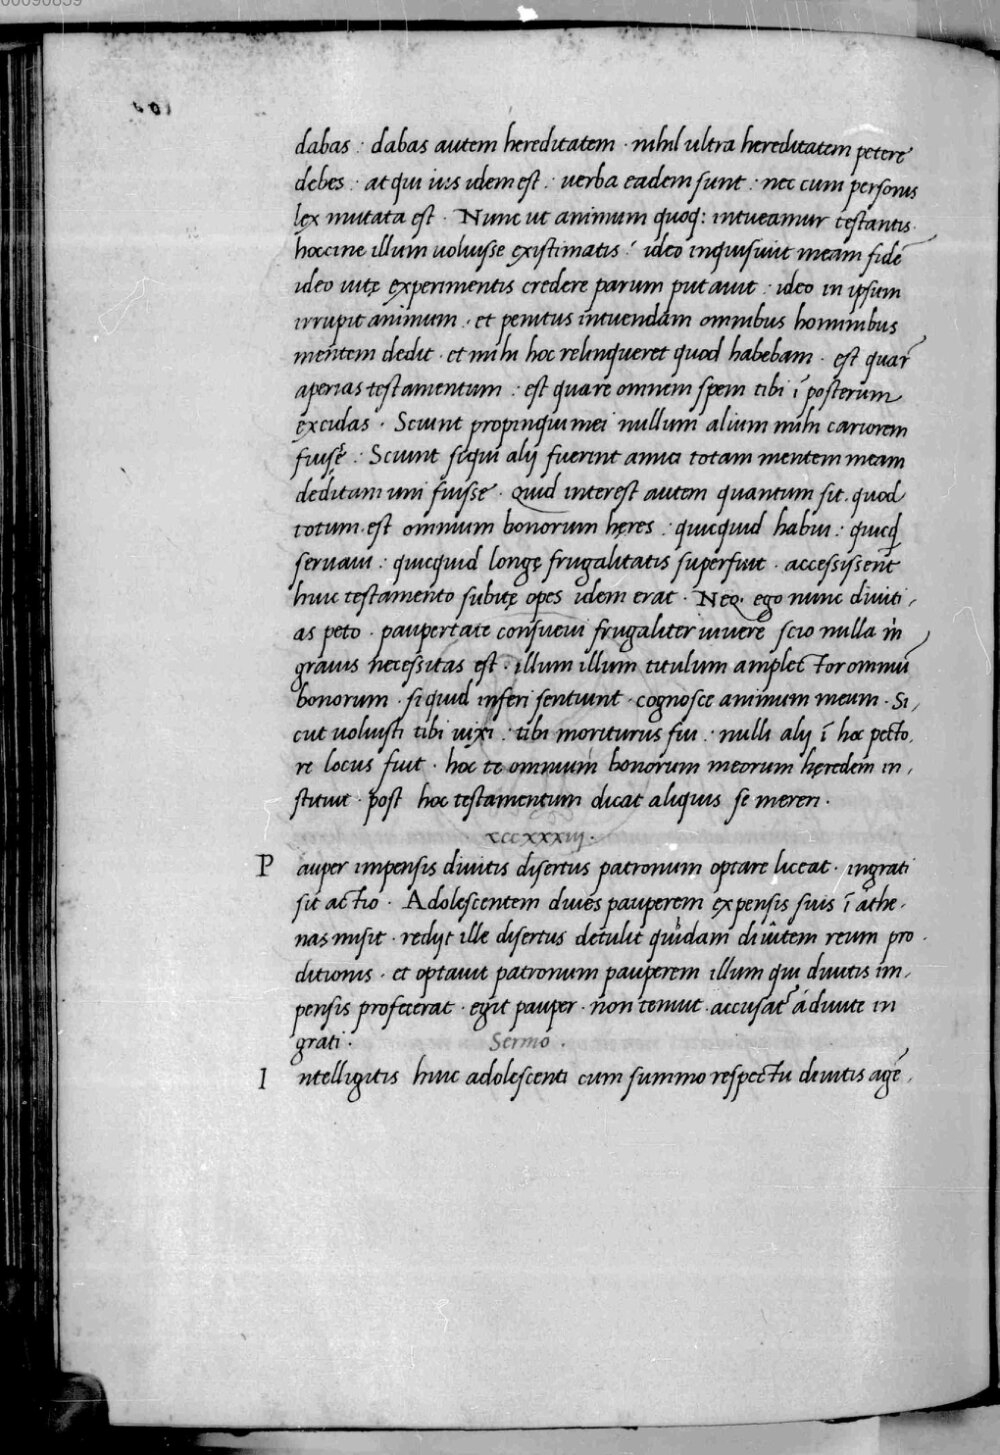 dabas : dabas autem hereditatem · nihil ultra hereditatem petere
debes : atqui ius idem est : verba eadem sunt : nec cum personis
lex mutata est · Nunc ut animum quoq: intueamur testantis·
hoccine illum voluisse existimatis ? ideo inquisiuit meam fidē
ideo uitę experimentis credere parum putauit : ideo in ipsum
irrupit animum · et penitus intuendam omnibus hominibus
mentem dedit · et mihi hoc relinqueret quod habebam · est quar̄
aperias testamentum : est quare omnem spem tibi ī posterum
exculas · Sciunt propinqui mei nullum alium mihi cariorem
fuisse : Sciunt siqui alij fuerint amici totam mentem meam
deditam uni fuisse · Quid interest autem quantum sit · quod
totum est omnium bonorum hęres : quicquid habui : quicq̄d
seruaui : quicquid longę frugalitatis superfuit · accessissent
huic testamento subitę opes idem erat · Neq. ego nunc diuiti,
as peto · paupertate consueui frugaliter uiuere scio nulla in
grauis necessitas est · illum illum titulum amplector omniū
bonorum · siquid inferi sentiunt · cognosce animum meum · Si,
cut uoluisti tibi uixi : tibi moriturus fui : nulli alij ī hoc pecto,
re locus fuit · hoc te omnium bonorum meorum hęredem in,
stituit · post hoc testamentum dicat aliquis se mereri ·
xccxxxiij·
Pauper impensis diuitis disertus patronum optare liceat · ingrati
sit actio · Adolescentem diues pauperem expensis suis ī athe,
nas misit · redijt ille disertus detulit quidam diuitem reum pro
ditionis · et optauit patronum pauperem illum qui diuitis im,
pensis profecerat · egit pauper · non tenuit · accusat̄ a diuite in
grati · Sermo ·
Intelligitis huic adolescenti cum summo respectu diuitis agē,